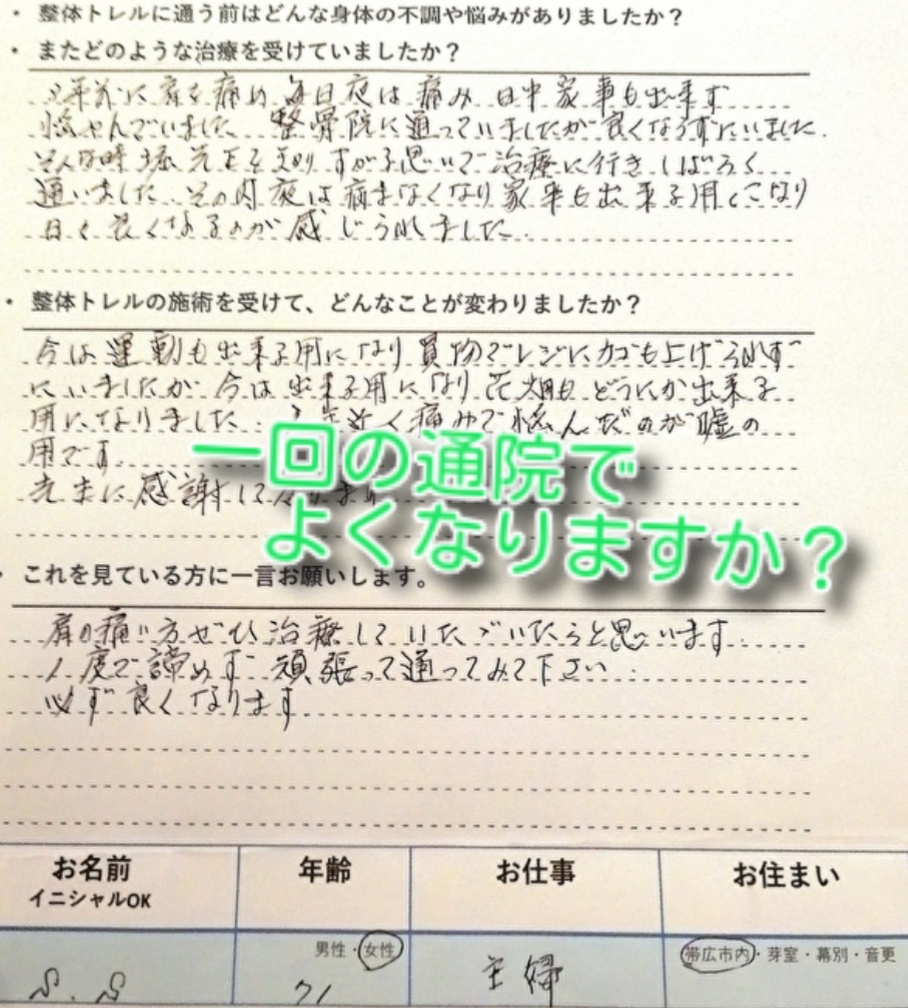 ・ 整体トレルに通う前はどんな身体の不調や悩みがありましたか？
・ またどのような治療を受けていましたか？
年前に肩を痛め 毎日夜は痛み 日中家事も出来ず
悩やんでいました 整骨院に通っていましたが良くならずにいました.
そんな時 先生を知り すがる思いで治療に行き しばらく
通いました.その内夜は痛まなくなり家事も出来る用になり
日々良くなるのが感じられました.
・ 整体トレルの施術を受けて、どんなことが変わりましたか？
今は運動も出来る用になり 買物でレジにカゴも上げられず
にいましたが 今は出来る用になり 花畑も どうにか出来る
用になりました. 近く痛みで悩んだのが嘘の
用です
先生に感謝して
一回の通院で
よくなりますか？
・ これを見ている方に一言お願いします。
肩の痛い方ぜひ治療していただいたらと思います.
1度で諦めず 頑張って通ってみて下さい.
必ず良くなります
お名前 年齢 お仕事 お住まい
イニシャルOK
男性・女性 帯広市内・芽室・幕別・音更
S.S 71 主婦